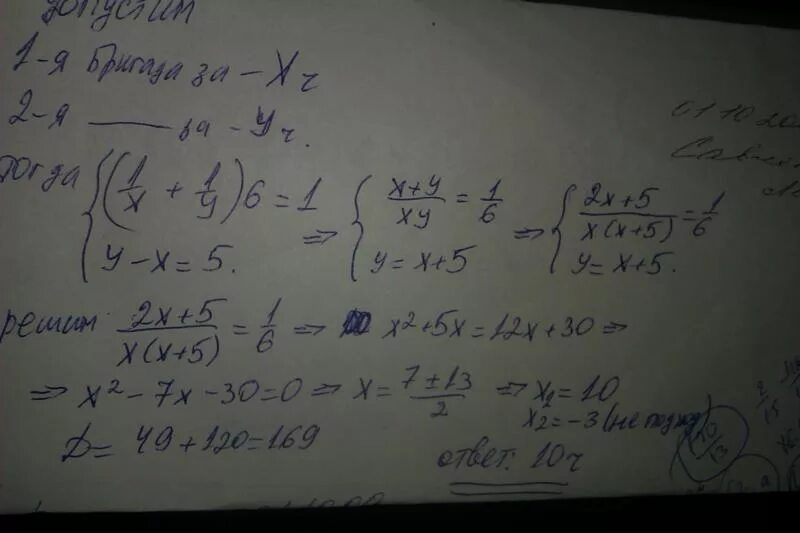 допустим
1-я бригада за - X ч
2-я —— за - Y ч.
тогда { (1/x + 1/y) 6 = 1 ⇒ { x+y/xy = 1/6 ⇒ { 2x+5/x(x+5) = 1/6
y - x = 5. y = x+5 y = x+5.
решим 2x+5/x(x+5) = 1/6 ⇒ x² + 5x = 12x + 30 ⇒
⇒ x² - 7x - 30 = 0 ⇒ x = 7 ± 13/2 ⇒ x₁ = 10
x₂ = -3 (не подход)
D = 49 + 120 = 169
ответ: 10 ч
01 10 20